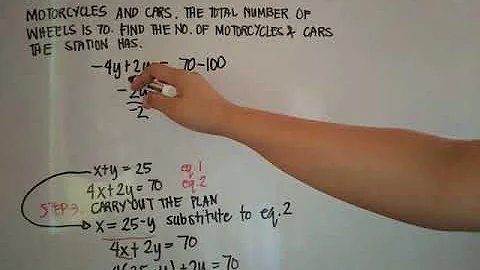 MOTORCYCLES AND CARS. THE TOTAL NUMBER OF
WHEELS IS 70. FIND THE NO. OF MOTORCYCLES & CARS
THE STATION HAS.
-4y+2y = 70-100
-2y
-2
x+y = 25 eq.1
4x+2y = 70 eq.2
STEP 3. CARRY OUT THE PLAN
x = 25-y substitute to eq.2
4x+2y = 70
4(25-y)+2y = 70